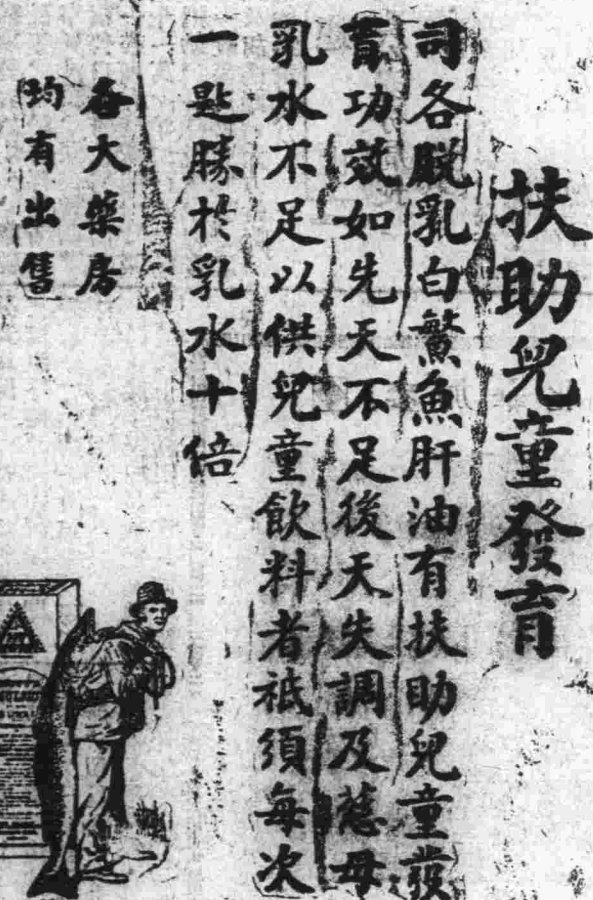 扶助兒童發育
司各脫乳白鰵魚肝油有扶助兒童發
育功效如先天不足後天失調及慈母
乳水不足以供兒童飲料者祇須每次
一匙勝於乳水十倍
各大藥房
均有出售